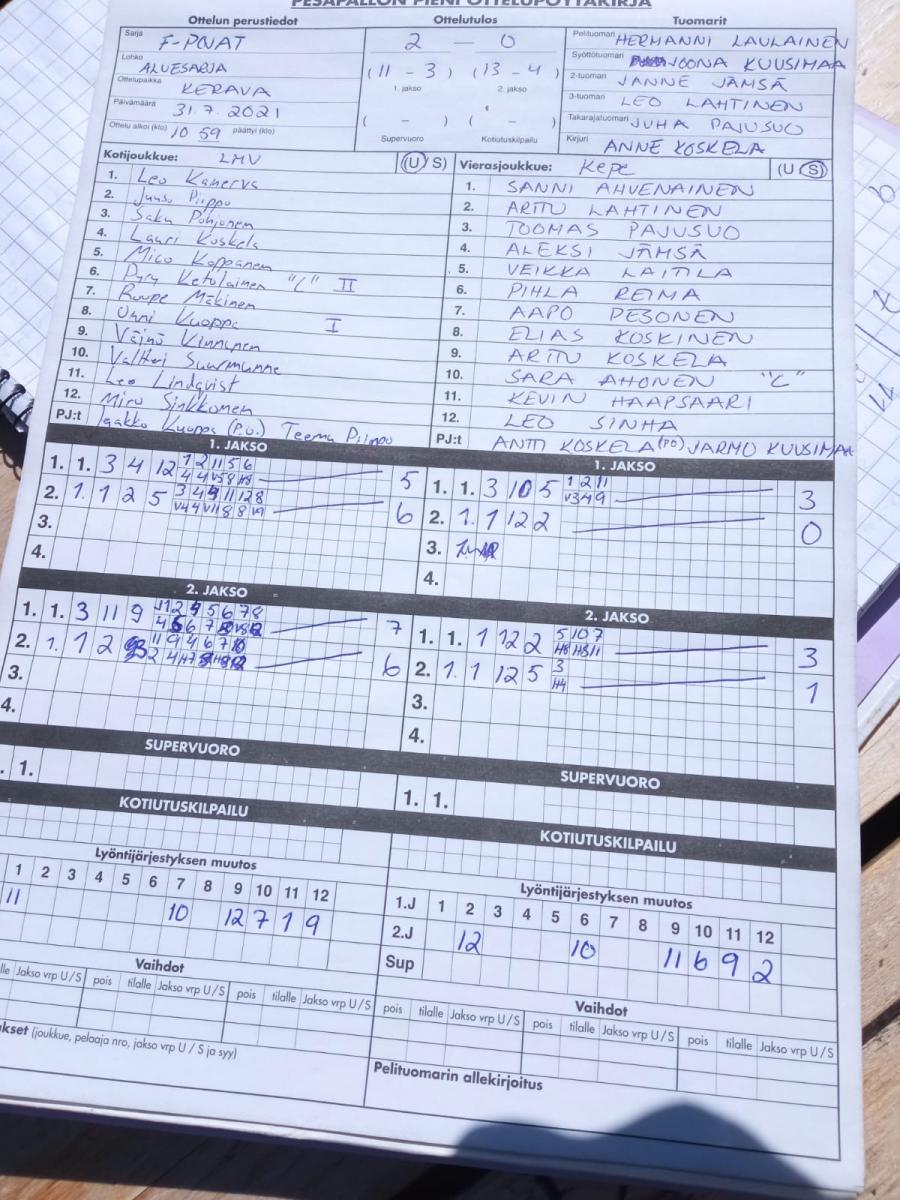 PESÄPALLON PIENI OTTELUPÖYTÄKIRJA
Ottelun perustiedot
Sarja F-POJAT
Lohko ALUESARJA
Ottelupaikka KERAVA
Päivämäärä 31.7.2021
Ottelu alkoi (klo) 10 59 päättyi (klo)
Ottelutulos
2 – 0
(11 – 3) (13 – 4)
1. jakso 2. jakso
( – ) ( – )
Supervuoro Kotiutuskilpailu
Tuomarit
Pelituomari HERMANNI LAULAINEN
Syöttötuomari JOONA KUUSIMAA
2-tuomari JANNE JÄMSÄ
3-tuomari LEO LAHTINEN
Takarajatuomari JUHA PAJUSUO
Kirjuri ANNE KOSKELA
Kotijoukkue: LMV (U S)
1. Leo Kanerva
2. Juuso Piippo
3. Saku Pohjonen
4. Lauri Koskela
5. Mico Koppanen
6. Pyry Ketolainen "C" II
7. Ruupe Mäkinen
8. Onni Kuoppa I
9. Väinö Kinnunen
10. Valtteri Suurmunne
11. Leo Lindqvist
12. Miro Sinkkonen
PJ:t Jaakko Kuoppa (P.U.) Teemu Piippo
Vierasjoukkue: Kepe (U S)
1. SANNI AHVENAINEN
2. ARTTU LAHTINEN
3. TOOMAS PAJUSUO
4. ALEKSI JÄMSÄ
5. VEIKKA LAITILA
6. PIHLA REIMA
7. AAPO PESONEN
8. ELIAS KOSKINEN
9. ARTTU KOSKELA
10. SARA AHONEN "C"
11. KEVIN HAAPSAARI
12. LEO SINHA
PJ:t ANTTI KOSKELA (PO) JARMO KUUSIMAA
1. JAKSO
1. 1. 3 4 12 1 2 11 5 6 5
4 4 V5 8 H8
2. 1. 1 2 5 6
3.
4.
1. JAKSO
1. 1. 3 10 5 1 2 11 3
V3 4 9
2. 1. 1 12 2 0
3.
4.
2. JAKSO
1. 1. 3 11 9 7
2. 1. 1 2 6
3.
4.
2. JAKSO
1. 1. 1 12 2 5 10 7 3
H8 H8 11
2. 1. 1 12 5 3 1
H4
3.
4.
SUPERVUORO
. 1.
SUPERVUORO
1. 1.
KOTIUTUSKILPAILU
KOTIUTUSKILPAILU
Lyöntijärjestyksen muutos
1 2 3 4 5 6 7 8 9 10 11 12
11 10 12 7 1 9
Lyöntijärjestyksen muutos
1.J 1 2 3 4 5 6 7 8 9 10 11 12
2.J 12 10 11 6 9 2
Sup
Vaihdot
lle Jakso vrp U/S pois tilalle Jakso vrp U/S pois tilalle Jakso vrp U/S
Vaihdot
pois tilalle Jakso vrp U/S pois tilalle Jakso vrp U/S pois tilalle Jakso vrp U/S
kset (joukkue, pelaaja nro, jakso vrp U / S ja syy)
Pelituomarin allekirjoitus